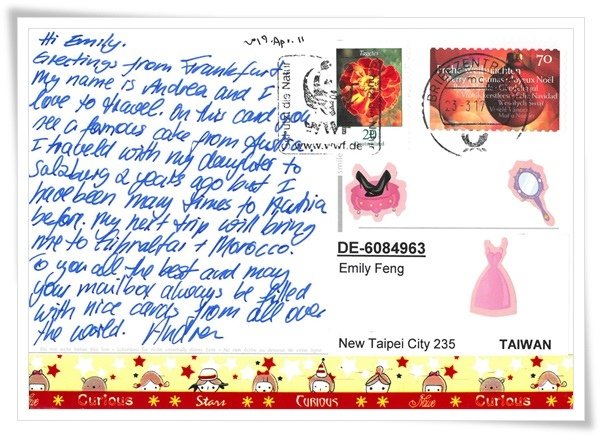 Hi Emily.
Greetings from Frankfurt
my name is Andrea and I
love to travel. On this card you
see a famous cake from Austria
I traveld with my daughter to
Salzburg 2 years ago but I
have been many times to Austria
before. my next trip will bring
me to Gibraltar + Morocco.
To you all the best and may
your mailbox always be filled
with nice cards from all over
the world. Andrea
19. Apr. 11
Tagetes
20
WWF
www.wwf.de
70
Merry Christmas Joyeux Noël
BRIEFZENTRUM
DE-6084963
Emily Feng
New Taipei City 235 TAIWAN
Curious Stars CURIOUS Nave Curious